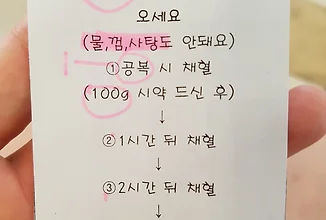 오세요
(물,껌,사탕도 안돼요)
①공복 시 채혈
(100g 시약 드신 후)
↓
②1시간 뒤 채혈
↓
③2시간 뒤 채혈
↓